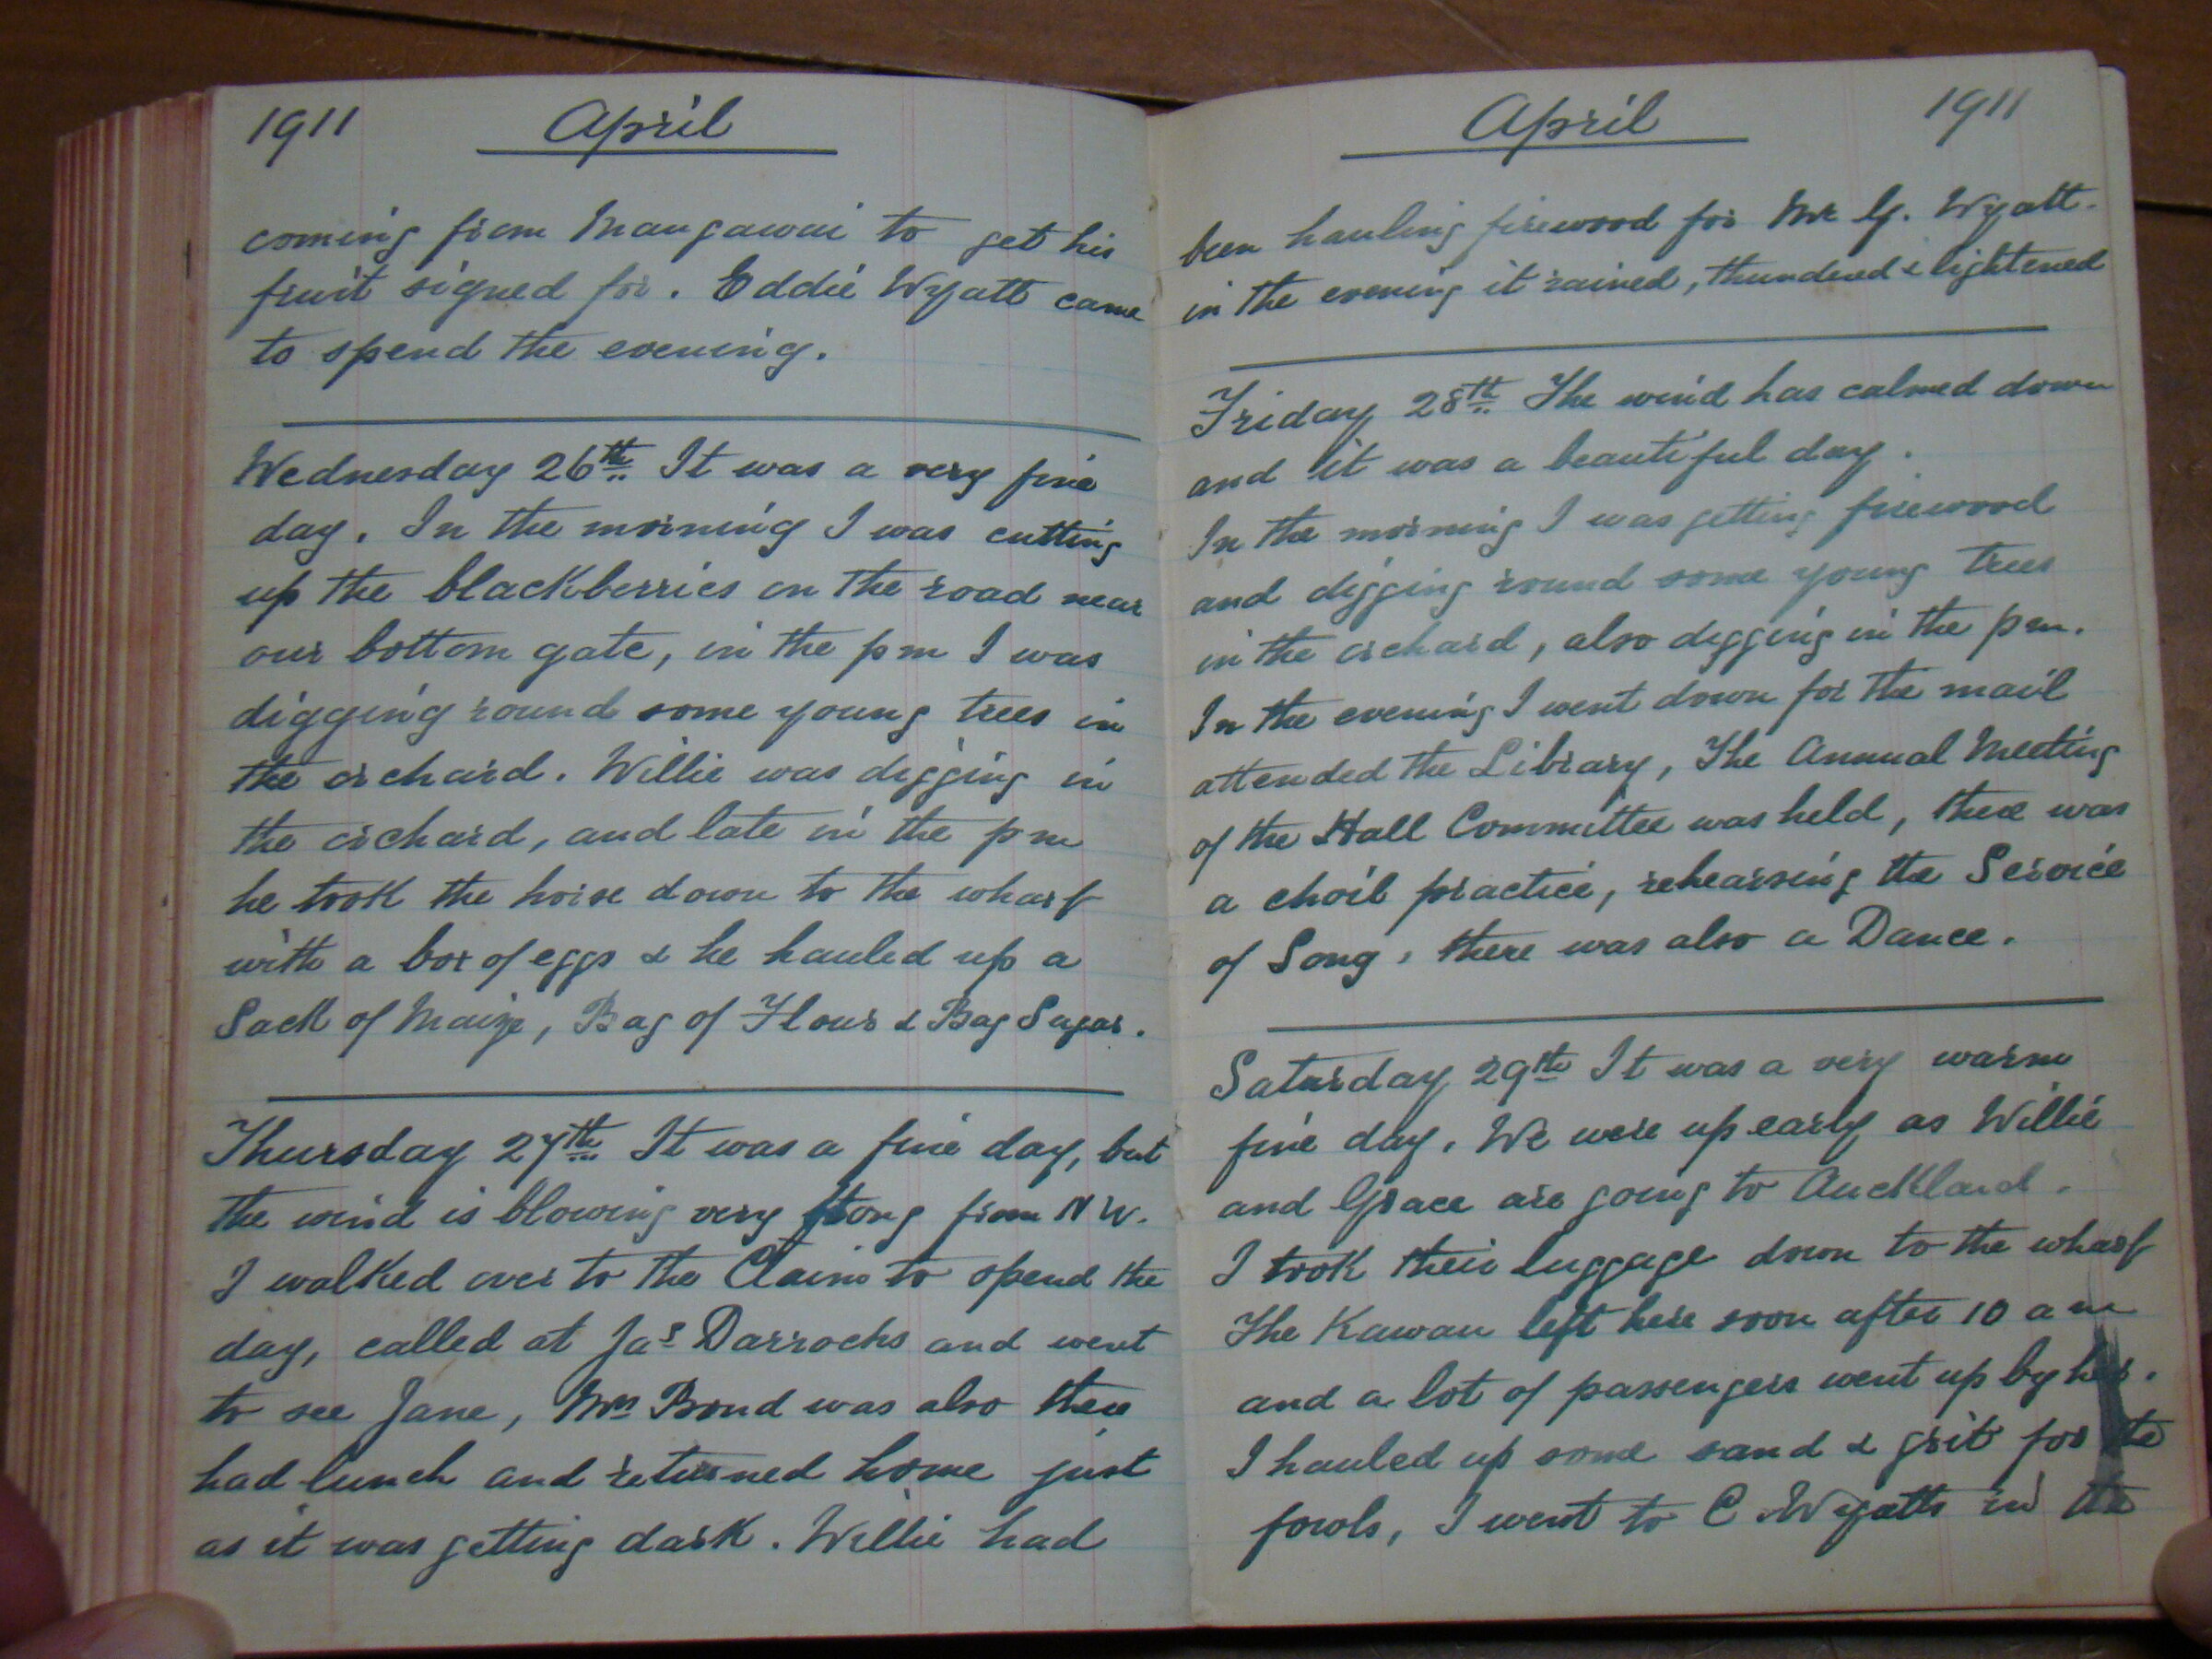 1911 April
coming from Mangawai to get his
fruit signed for. Eddie Wyatt came
to spend the evening.
Wednesday 26th It was a very fine
day. In the morning I was cutting
up the blackberries on the road near
our bottom gate, in the pm I was
digging round some young trees in
the orchard. Willie was digging in
the orchard, and late in the pm
he took the horse down to the wharf
with a box of eggs & he hauled up a
Sack of Maize, Bag of Flour & Bag Sugar.
Thursday 27th It was a fine day, but
the wind is blowing very strong from NW.
I walked over to the Claim to spend the
day, called at Jas Darrochs and went
to see Jane, Mrs Bond was also there
had lunch and returned home just
as it was getting dark. Willie had
April 1911
been hauling firewood for Mr G. Wyatt.
in the evening it rained, thundered & lightened
Friday 28th The wind has calmed down
and it was a beautiful day.
In the morning I was getting firewood
and digging round some young trees
in the orchard, also digging in the pm.
In the evening I went down for the mail
attended the Library, The Annual Meeting
of the Hall Committee was held, there was
a choir practice, rehearsing the Service
of Song, there was also a Dance.
Saturday 29th It was a very warm
fine day. We were up early as Willie
and Grace are going to Auckland.
I took their luggage down to the wharf
The Kawau left here soon after 10 am
and a lot of passengers went up by her.
I hauled up some sand & grit for the
fowls, I went to C Wyatts in the